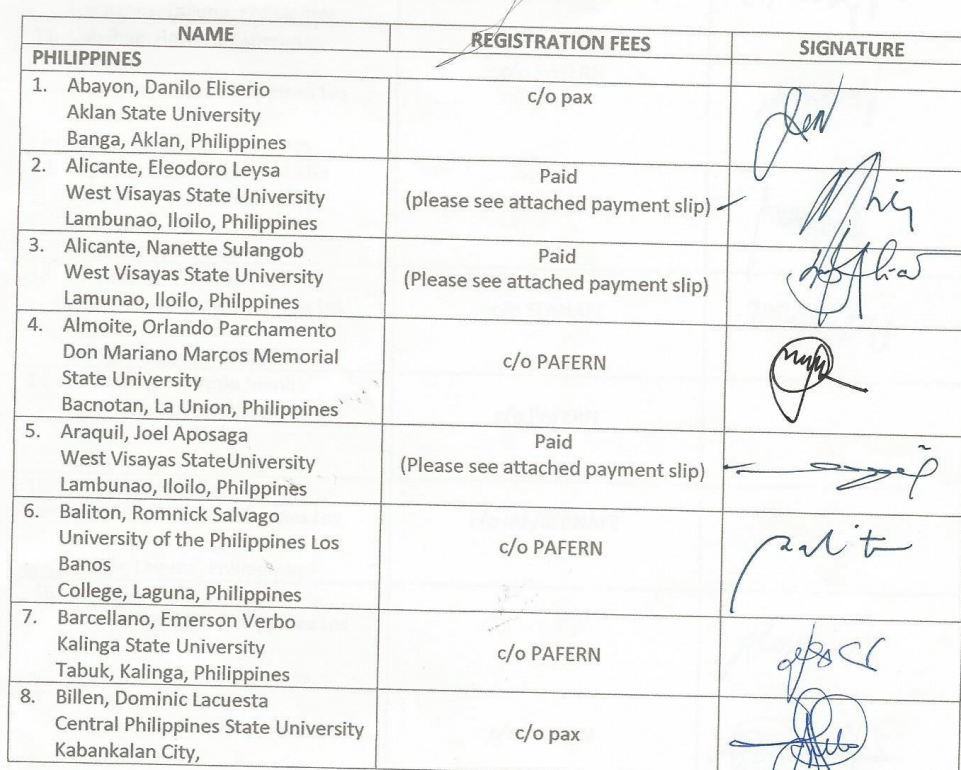 NAME REGISTRATION FEES SIGNATURE
PHILIPPINES
1. Abayon, Danilo Eliserio
Aklan State University
Banga, Aklan, Philippines
c/o pax
2. Alicante, Eleodoro Leysa
West Visayas State University
Lambunao, Iloilo, Philippines
Paid
(please see attached payment slip)
3. Alicante, Nanette Sulangob
West Visayas State University
Lamunao, Iloilo, Philppines
Paid
(Please see attached payment slip)
4. Almoite, Orlando Parchamento
Don Mariano Marcos Memorial
State University
Bacnotan, La Union, Philippines
c/o PAFERN
5. Araquil, Joel Aposaga
West Visayas StateUniversity
Lambunao, Iloilo, Philppines
Paid
(Please see attached payment slip)
6. Baliton, Romnick Salvago
University of the Philippines Los
Banos
College, Laguna, Philippines
c/o PAFERN
7. Barcellano, Emerson Verbo
Kalinga State University
Tabuk, Kalinga, Philippines
c/o PAFERN
8. Billen, Dominic Lacuesta
Central Philippines State University
Kabankalan City,
c/o pax